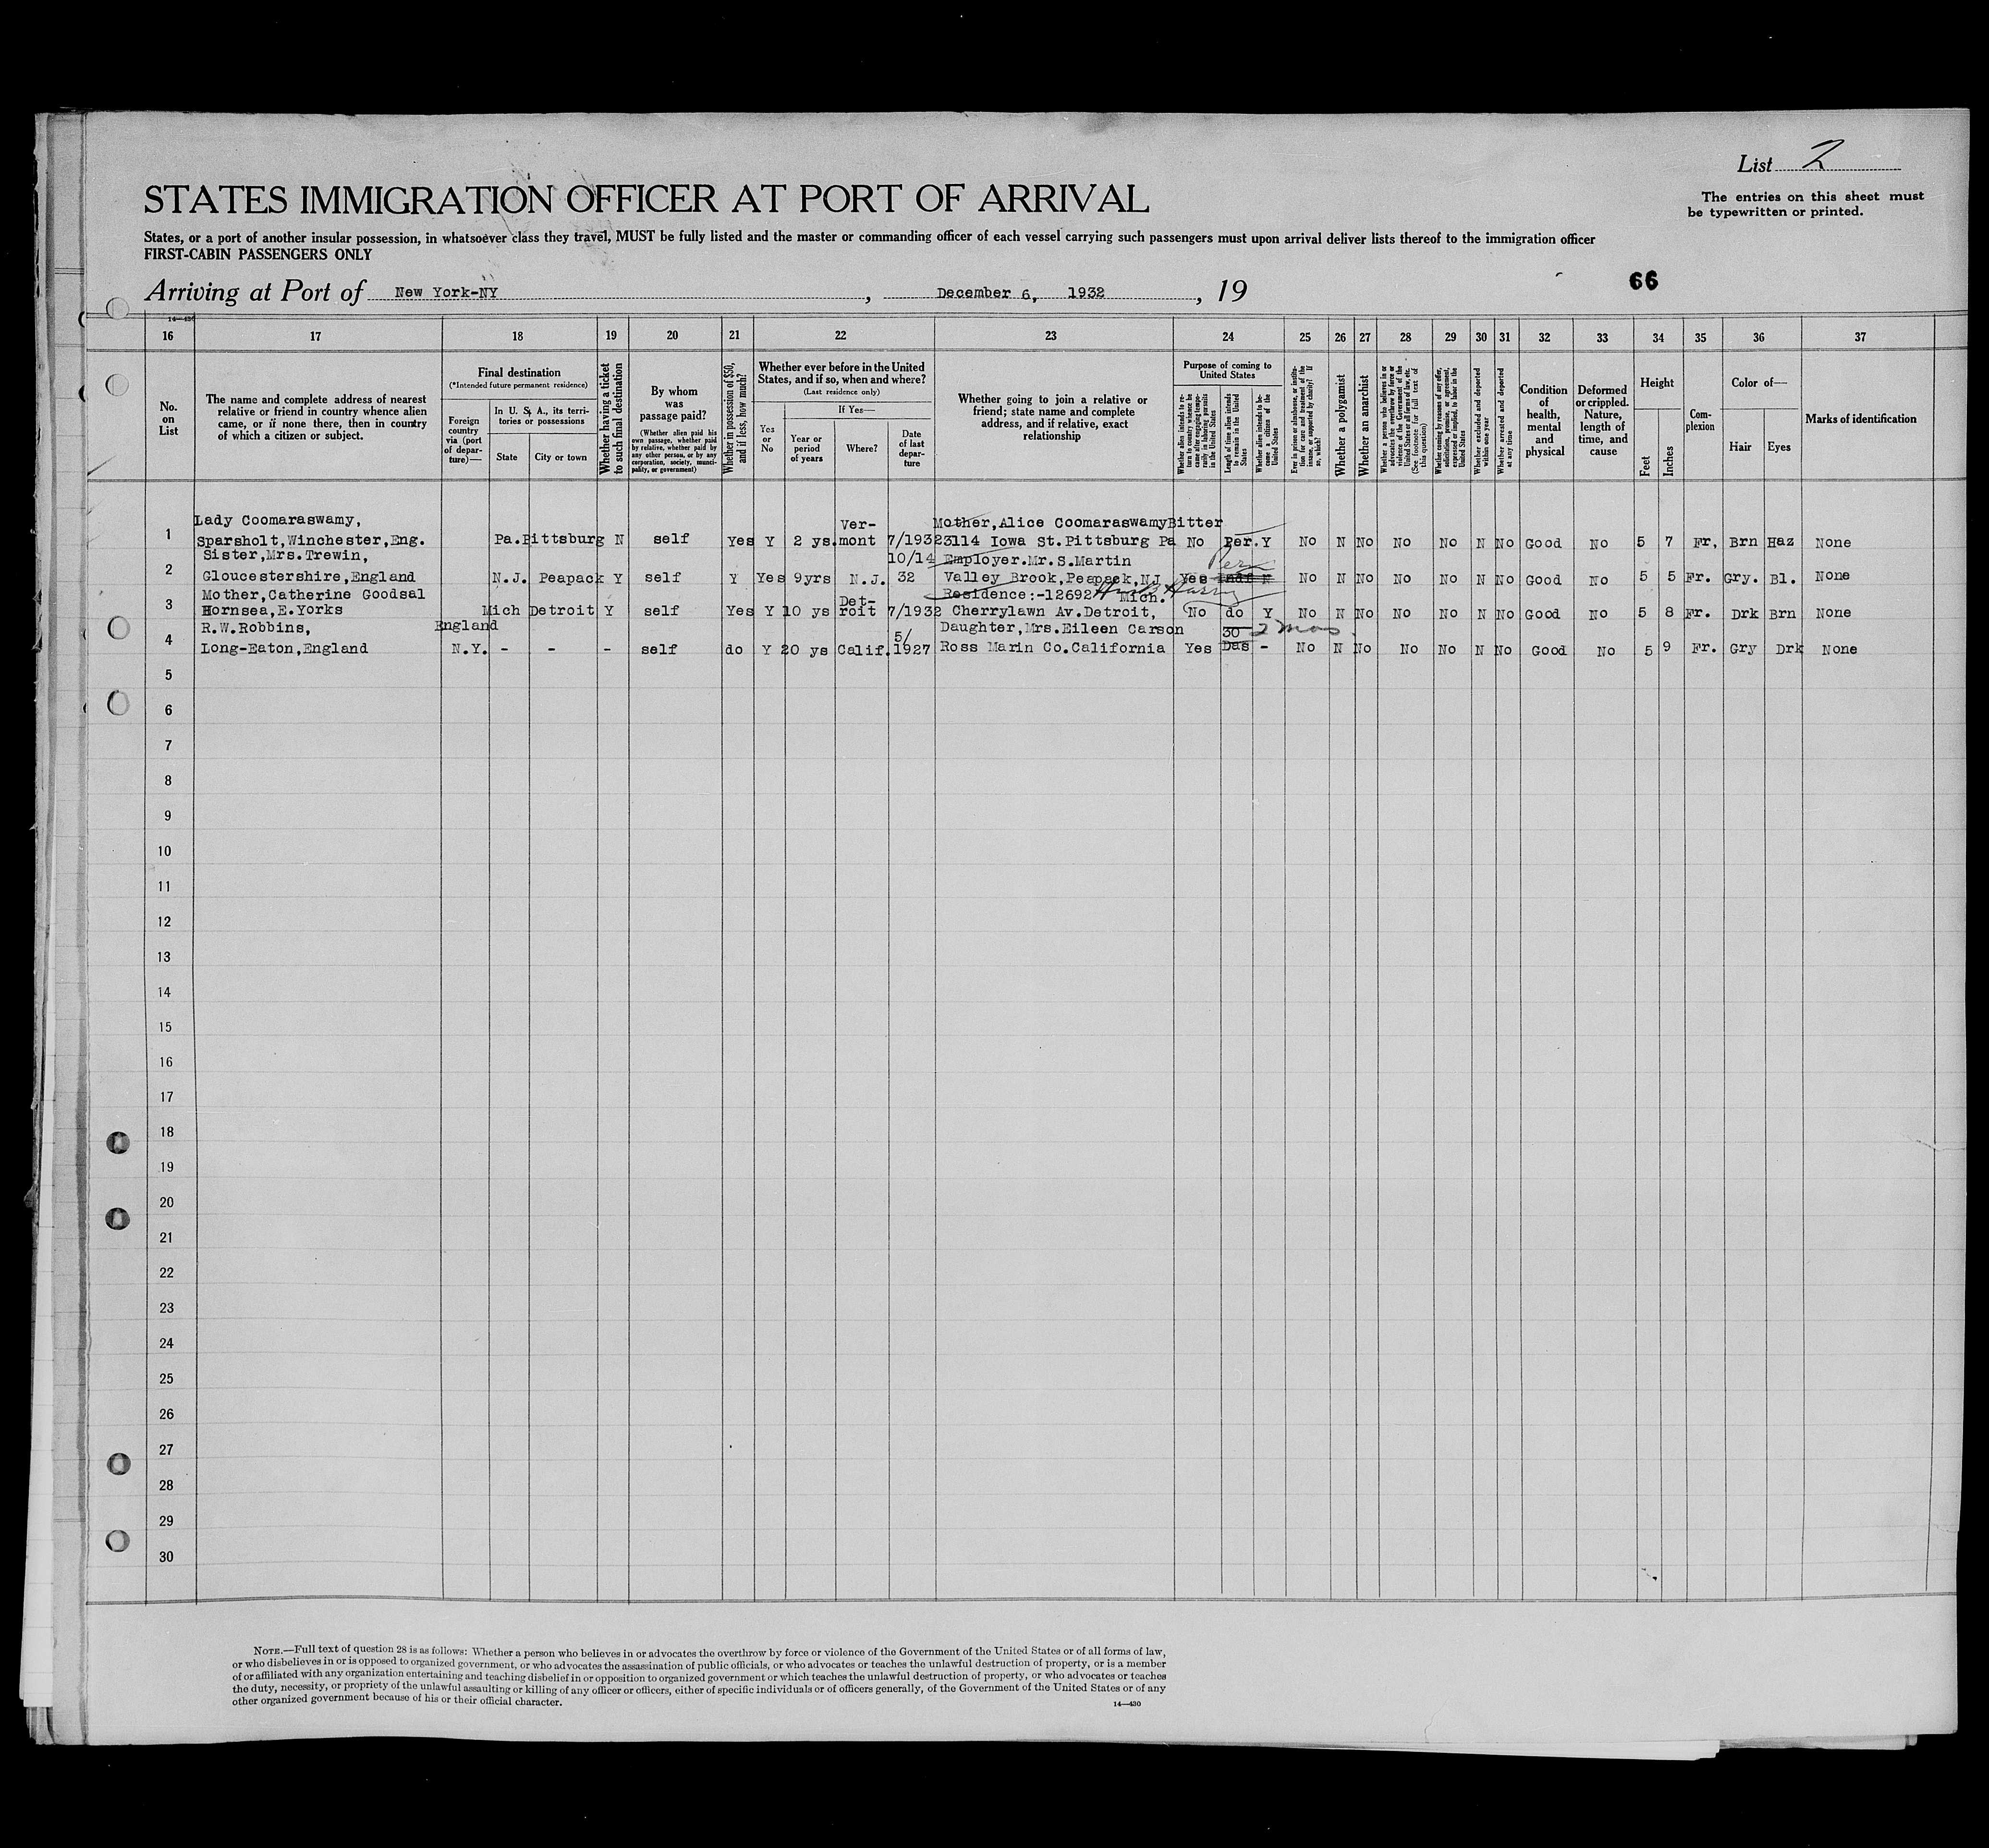 List 2
STATES IMMIGRATION OFFICER AT PORT OF ARRIVAL
The entries on this sheet must
be typewritten or printed.
States, or a port of another insular possession, in whatsoever class they travel, MUST be fully listed and the master or commanding officer of each vessel carrying such passengers must upon arrival deliver lists thereof to the immigration officer
FIRST-CABIN PASSENGERS ONLY
66
Arriving at Port of New York-NY, December 6, 1932, 19
14-430
16 17 18 19 20 21 22 23 24 25 26 27 28 29 30 31 32 33 34 35 36 37
No. on List
The name and complete address of nearest
relative or friend in country whence alien
came, or if none there, then in country
of which a citizen or subject.
Final destination
(*Intended future permanent residence)
Foreign country via (port of departure)—
In U. S. A., its territories or possessions
State
City or town
Whether having a ticket to such final destination
By whom was passage paid?
(Whether alien paid his own passage, whether paid by relative, whether paid by any other person, or by any corporation, society, municipality, or government)
Whether in possession of $50, and if less, how much?
Whether ever before in the United States, and if so, when and where?
(Last residence only)
Yes or No
If Yes—
Year or period of years
Where?
Date of last departure
Whether going to join a relative or
friend; state name and complete
address, and if relative, exact
relationship
Purpose of coming to United States
Whether alien intends to return to country whence he came after engaging temporarily in laboring pursuits in the United States
Length of time alien intends to remain in the United States
Whether alien intends to become a citizen of the United States
Ever in prison or almshouse, or institution for care and treatment of the insane, or supported by charity? If so, which?
Whether a polygamist
Whether an anarchist
Whether a person who believes in or advocates the overthrow by force or violence of the Government of the United States or all forms of law, etc. (See footnote for full text of this question)
Whether coming by reasons of any offer, solicitation, promise, or agreement, expressed or implied, to labor in the United States
Whether excluded and deported within one year
Whether arrested and deported at any time
Condition of health, mental and physical
Deformed or crippled. Nature, length of time, and cause
Height
Feet
Inches
Complexion
Color of—
Hair
Eyes
Marks of identification
Lady Coomaraswamy, Ver- Mother,Alice CoomaraswamyBitter
1 Sparsholt,Winchester,Eng. Pa. Pittsburg N self Yes Y 2 ys. mont 7/1932 3114 Iowa St.Pittsburg Pa No Per. Y No N No No No N No Good No 5 7 Fr, Brn Haz None
Sister,Mrs.Trewin, 10/14 Employer.Mr.S.Martin Per
2 Gloucestershire,England N.J. Peapack Y self Y Yes 9yrs N.J. 32 Valley Brook,Peapack,NJ Yes No N No No No N No Good No 5 5 Fr. Gry. Bl. None
Mother,Catherine Goodsal Det- Residence:-12692 Mich.
3 Hornsea,E.Yorks Mich Detroit Y self Yes Y 10 ys roit 7/1932 Cherrylawn Av.Detroit, No do Y No N No No No N No Good No 5 8 Fr. Drk Brn None
R.W.Robbins, England 5/ Daughter,Mrs.Eileen Carson 30 2 mos.
4 Long-Eaton,England N.Y. - - - self do Y 20 ys Calif. 1927 Ross Marin Co.California Yes Das - No N No No No N No Good No 5 9 Fr. Gry Drk None
5
6
7
8
9
10
11
12
13
14
15
16
17
18
19
20
21
22
23
24
25
26
27
28
29
30
NOTE.—Full text of question 28 is as follows: Whether a person who believes in or advocates the overthrow by force or violence of the Government of the United States or of all forms of law,
or who disbelieves in or is opposed to organized government, or who advocates the assassination of public officials, or who advocates or teaches the unlawful destruction of property, or is a member
of or affiliated with any organization entertaining and teaching disbelief in or opposition to organized government or which teaches the unlawful destruction of property, or who advocates or teaches
the duty, necessity, or propriety of the unlawful assaulting or killing of any officer or officers, either of specific individuals or of officers generally, of the Government of the United States or of any
other organized government because of his or their official character.
14—430